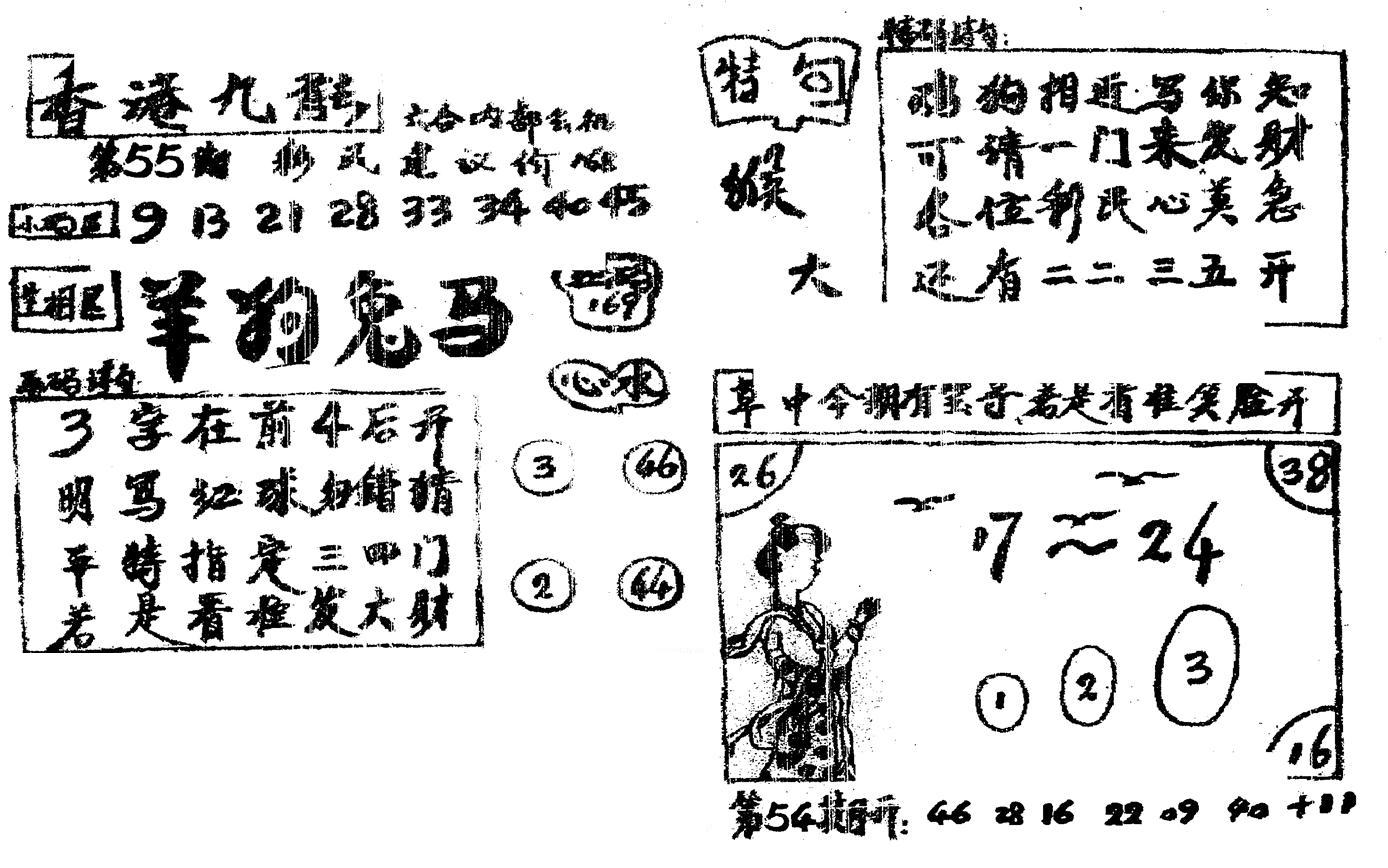 香港九龍
六合内部玄机
第55期 彩民建议价
小码区 9 13 21 28 33 34 40 45
生相区 羊狗兔马
169
心水
3 46
2 44
3字在前4后开
明写红球细猜
平特指定三四门
若是看准发大财
特句
猴
大
特码诗句:
鸡狗相近写你知
可请一门来发财
各位彩民心莫急
还有二二三五开
草中今期有若是看准笑脸开
26 38
17 24
1 2 3
16
第54期开: 46 28 16 22 09 40 +11